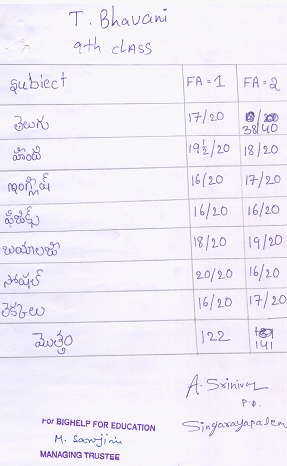 T. Bhavani
9th CLASS
Subject FA=1 FA=2
తెలుగు 17/20 38/40
హిందీ 19½/20 18/20
ఇంగ్లీష్ 16/20 17/20
ఫిజిక్స్ 16/20 16/20
బయాలజి 18/20 19/20
సోషల్ 20/20 16/20
లెక్కలు 16/20 17/20
మొత్తం 122 141
A. Srinivas
P.D.
Singarayapalem
For BIGHELP FOR EDUCATION
M. Sarojini
MANAGING TRUSTEE